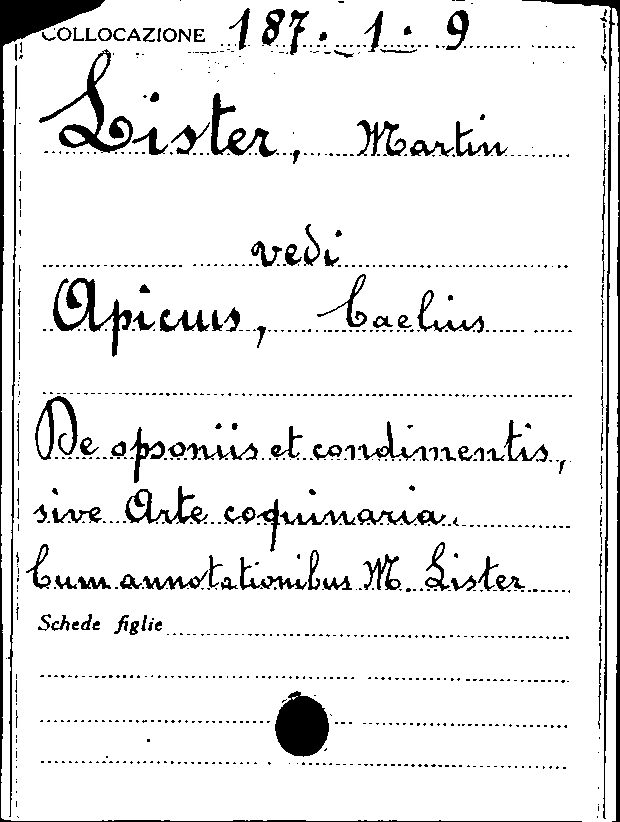 COLLOCAZIONE 187. 1. 9
Lister, Martin
vedi
Apicius, Caelius
De opsoniis et condimentis,
sive Arte coquinaria.
Cum annotationibus M. Lister
Schede figlie